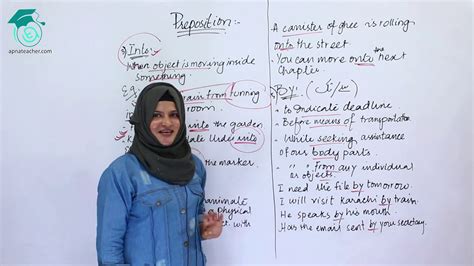 apnateacher.com
Preposition:-
Into:
When object is moving inside
something.
E.g.
rain from running
room.
into the garden
date Urdu into
the marker.
animate
a physical
ct. with
A canister of ghee is rolling
onto the street
You can move onto the next
Chapter.
By:
to indicate deadline
Before means of transportation
While seeking assistance
of our body parts.
" " from any individual
or objects.
I need the file by tomorrow.
I will visit Karachi by train.
He speaks by his mouth.
Has the email sent by your secretary.